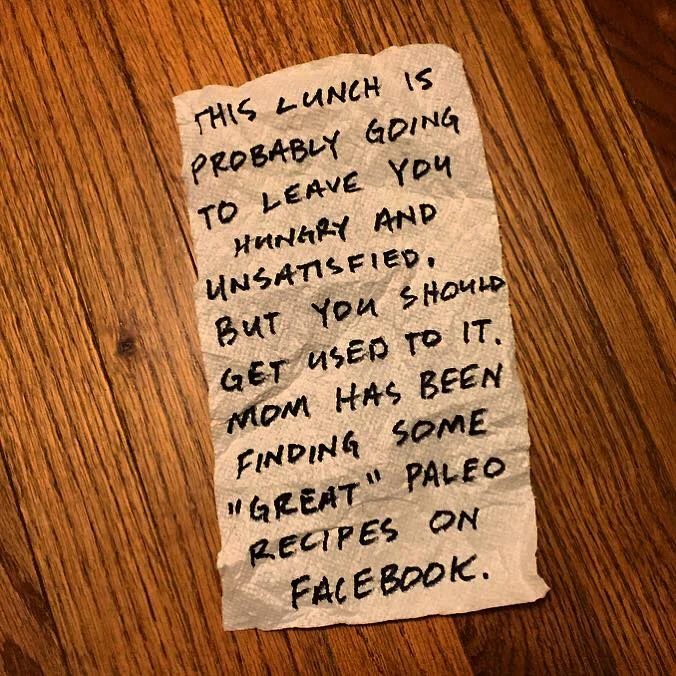 THIS LUNCH IS
PROBABLY GOING
TO LEAVE YOU
HUNGRY AND
UNSATISFIED.
BUT YOU SHOULD
GET USED TO IT.
MOM HAS BEEN
FINDING SOME
"GREAT" PALEO
RECIPES ON
FACEBOOK.